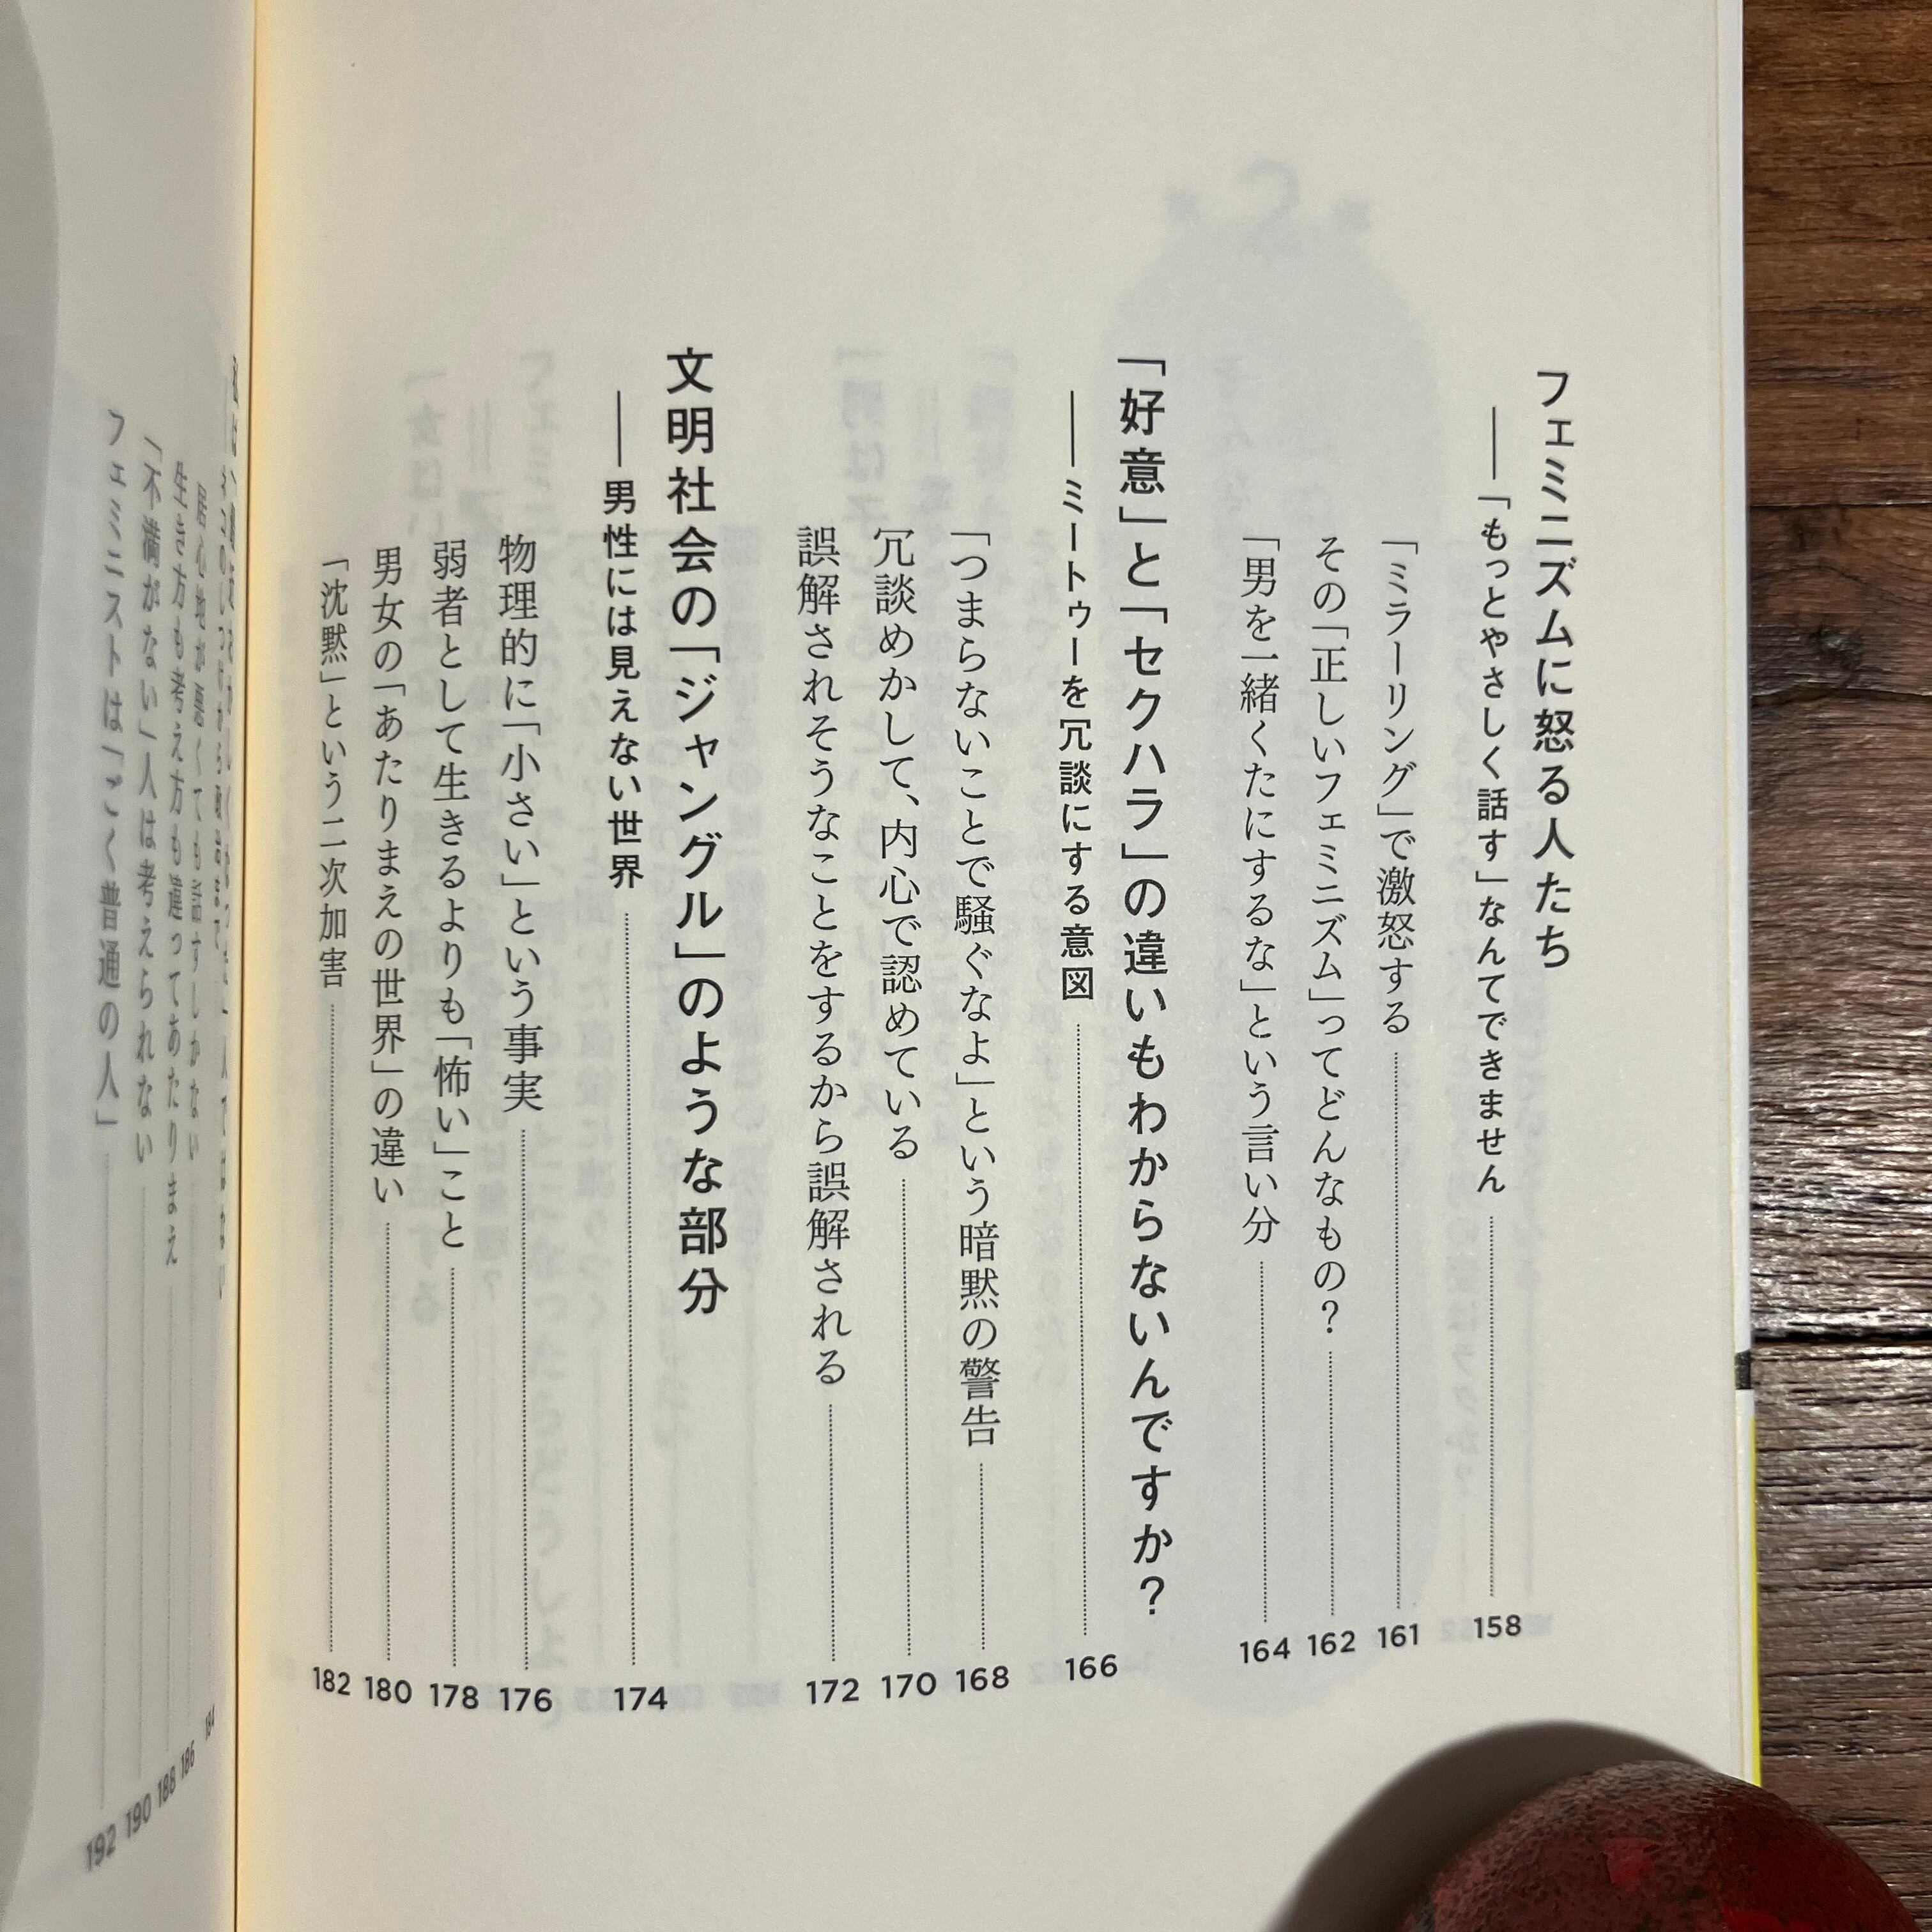 フェミニズムに怒る人たち
──「もっとやさしく話す」なんてできません 158
「ミラーリング」で激怒する 161
その「正しいフェミニズム」ってどんなもの？ 162
「男を一緒くたにするな」という言い分 164
「好意」と「セクハラ」の違いもわからないんですか？
──ミートゥーを冗談にする意図 166
「つまらないことで騒ぐなよ」という暗黙の警告 168
冗談めかして、内心で認めている 170
誤解されそうなことをするから誤解される 172
文明社会の「ジャングル」のような部分
──男性には見えない世界 174
物理的に「小さい」という事実 176
弱者として生きるよりも「怖い」こと 178
男女の「あたりまえの世界」の違い 180
「沈黙」という二次加害 182
184
居心地が悪くても話すしかない 186
生き方も考え方も違ってあたりまえ 188
「不満がない」人は考えられない 190
フェミニストは「ごく普通の人」 192